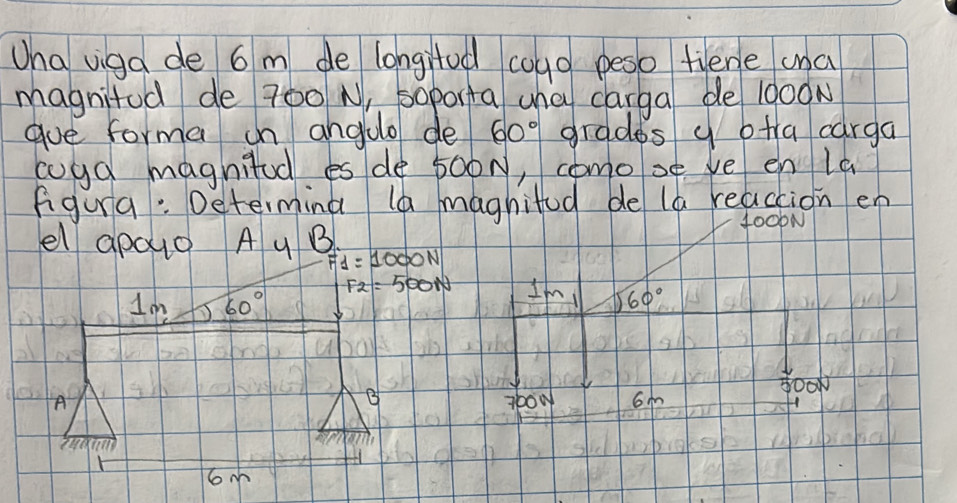 Una viga de 6 m de longitud cuyo peso tiene una
magnitud de 700 N, soporta una carga de 1000N
que forma un angulo de 60° grados y otra carga
cuya magnitud es de 500N, como se ve en la
figura: Determina la magnitud de la reacción en
el apoyo A y B.
1000N
F1=1000N
F2=500N
1m 60°
1m 60°
A B
700N 6m 500N
6m